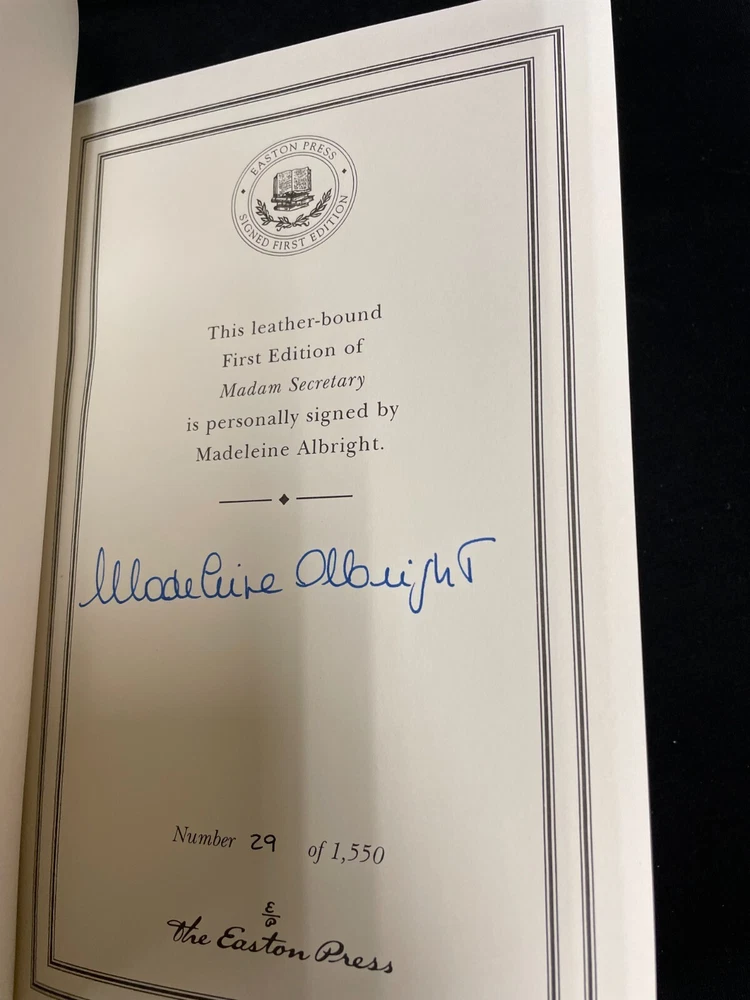 EASTON PRESS
SIGNED FIRST EDITION
This leather-bound
First Edition of
Madam Secretary
is personally signed by
Madeleine Albright.
Madeleine Albright
Number 29 of 1,550
E
P
The Easton Press